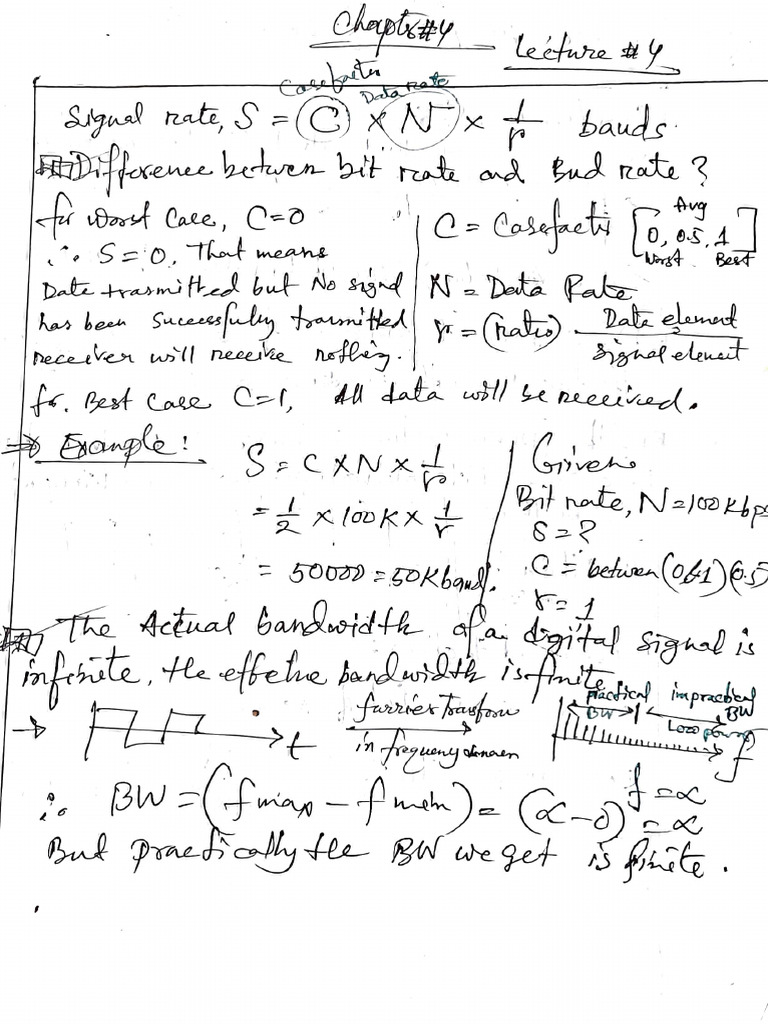 Chapter#4
Lecture #4
Casefactor
Data rate
Signal rate, S = C × N × 1/r bauds.
Difference between bit rate and Bud rate?
for Worst Case, C=0
∴ S=0, That means
Date trasmitted but No signal
has been Successfully transmitted
receiver will receive nothing.
C = Casefactor [0, 0.5, 1]
Avg
Worst Best
N = Data Rate
r = (ratio) Data element / signal element
for Best Case C=1, All data will be received.
→ Example:
S = C × N × 1/r
= 1/2 × 100K × 1/r
= 50000 = 50K baud.
Given
Bit rate, N = 100 kbps
S = ?
C = between (0&1) (0.5)
r = 1
The Actual bandwidth of a digital signal is
infinite, the effective bandwidth is finite.
→ t
furrier Trasform
in frequency domain
practical BW
impractical BW
Loco power
f
f = α
∴ BW = (fmax - fmin) = (α - 0) = α
But practically the BW we get is finite.